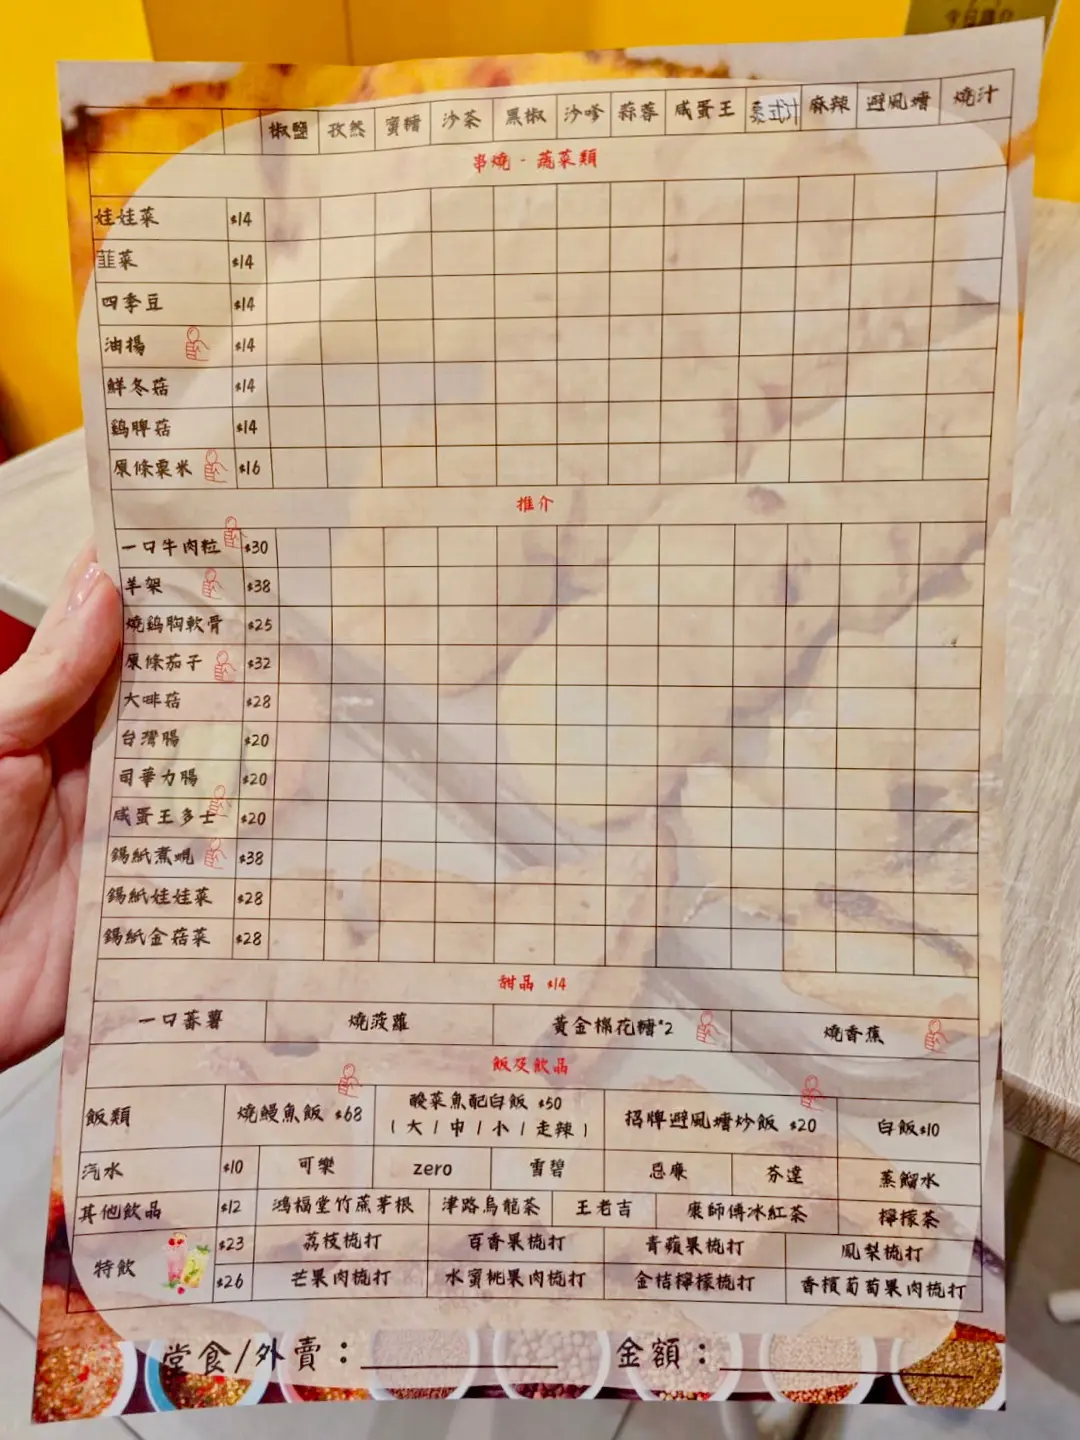 椒鹽 孜然 蜜糖 沙茶 黑椒 沙嗲 蒜蓉 咸蛋王 泰式汁 麻辣 避風塘 燒汁
串燒 - 蔬菜類
娃娃菜 $14
韮菜 $14
四季豆 $14
油揚 $14
鮮冬菇 $14
鷄脾菇 $14
原條粟米 $16
推介
一口牛肉粒 $30
羊架 $38
燒鷄胸軟骨 $25
原條茄子 $32
大啡菇 $28
台灣腸 $20
司華力腸 $20
咸蛋王多士 $20
錫紙煮蜆 $38
錫紙娃娃菜 $28
錫紙金菇菜 $28
甜品 $14
一口蕃薯 燒菠蘿 黃金棉花糖*2 燒香蕉
飯及飲品
飯類 燒鰻魚飯 $68 酸菜魚配白飯 $50 招牌避風塘炒飯 $20 白飯$10
( 大 / 中 / 小 / 走辣 )
汽水 $10 可樂 zero 雪碧 忌廉 芬達 蒸餾水
其他飲品 $12 鴻福堂竹蔗茅根 津路烏龍茶 王老吉 康師傅冰紅茶 檸檬茶
特飲 $23 荔枝梳打 百香果梳打 青蘋果梳打 鳳梨梳打
$26 芒果肉梳打 水蜜桃果肉梳打 金桔檸檬梳打 香檳葡萄果肉梳打
堂食/外賣：＿＿＿＿ 金額：＿＿＿＿